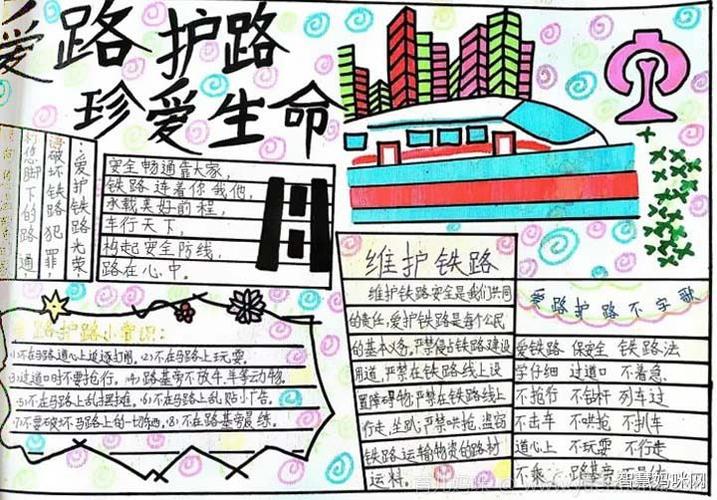 爱路护路
珍爱生命
爱护铁路光荣,
破坏铁路犯罪,
脚下的路通
安全畅通靠大家,
铁路连着你我他,
承载美好前程,
车行天下,
构起安全防线,
路在心中。
护路小常识:
(1)不在马路道心上追逐打闹。(2)不在马路上玩耍。
(3)过道口时不要抢行。(4)路基旁不放牛、羊等动物。
(5)不在马路上乱摆摊。(6)不在马路上乱贴小广告。
(7)不要破坏马路上的一切东西。(8)不在路基旁晨练。
维护铁路
维护铁路安全是我们共同
的责任,爱护铁路是每个公民
的基本义务,严禁侵占铁路建设
用道,严禁在铁路线上设
置障碍物,严禁在铁路线上
行走,坐卧,严禁哄抢,盗窃
铁路运输物资的路材
运料。
爱路护路不字歌
爱铁路 保安全 铁路法
学仔细 过道口 不着急
不抢行 不钻杆 列车过
不击车 不哄抢 不扒车
道心上 不玩耍 不行走
不乘 路基旁
智慧妈咪网